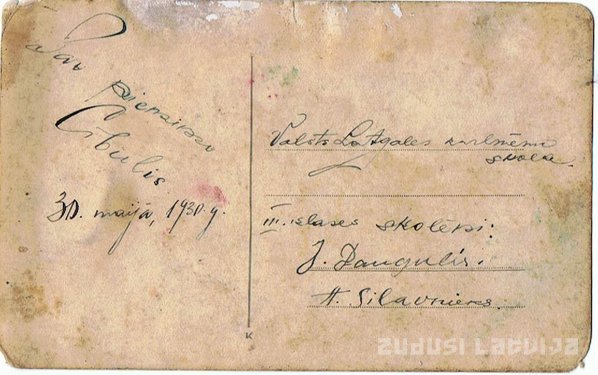 Par piemiņu
Cibulis
30. maijā, 1930.g.
Valsts Latgales kurlmēmo
skola.
III. klases skolēni:
J. Daugulis.
A. Silavnieks.
K
zudusi Latvija